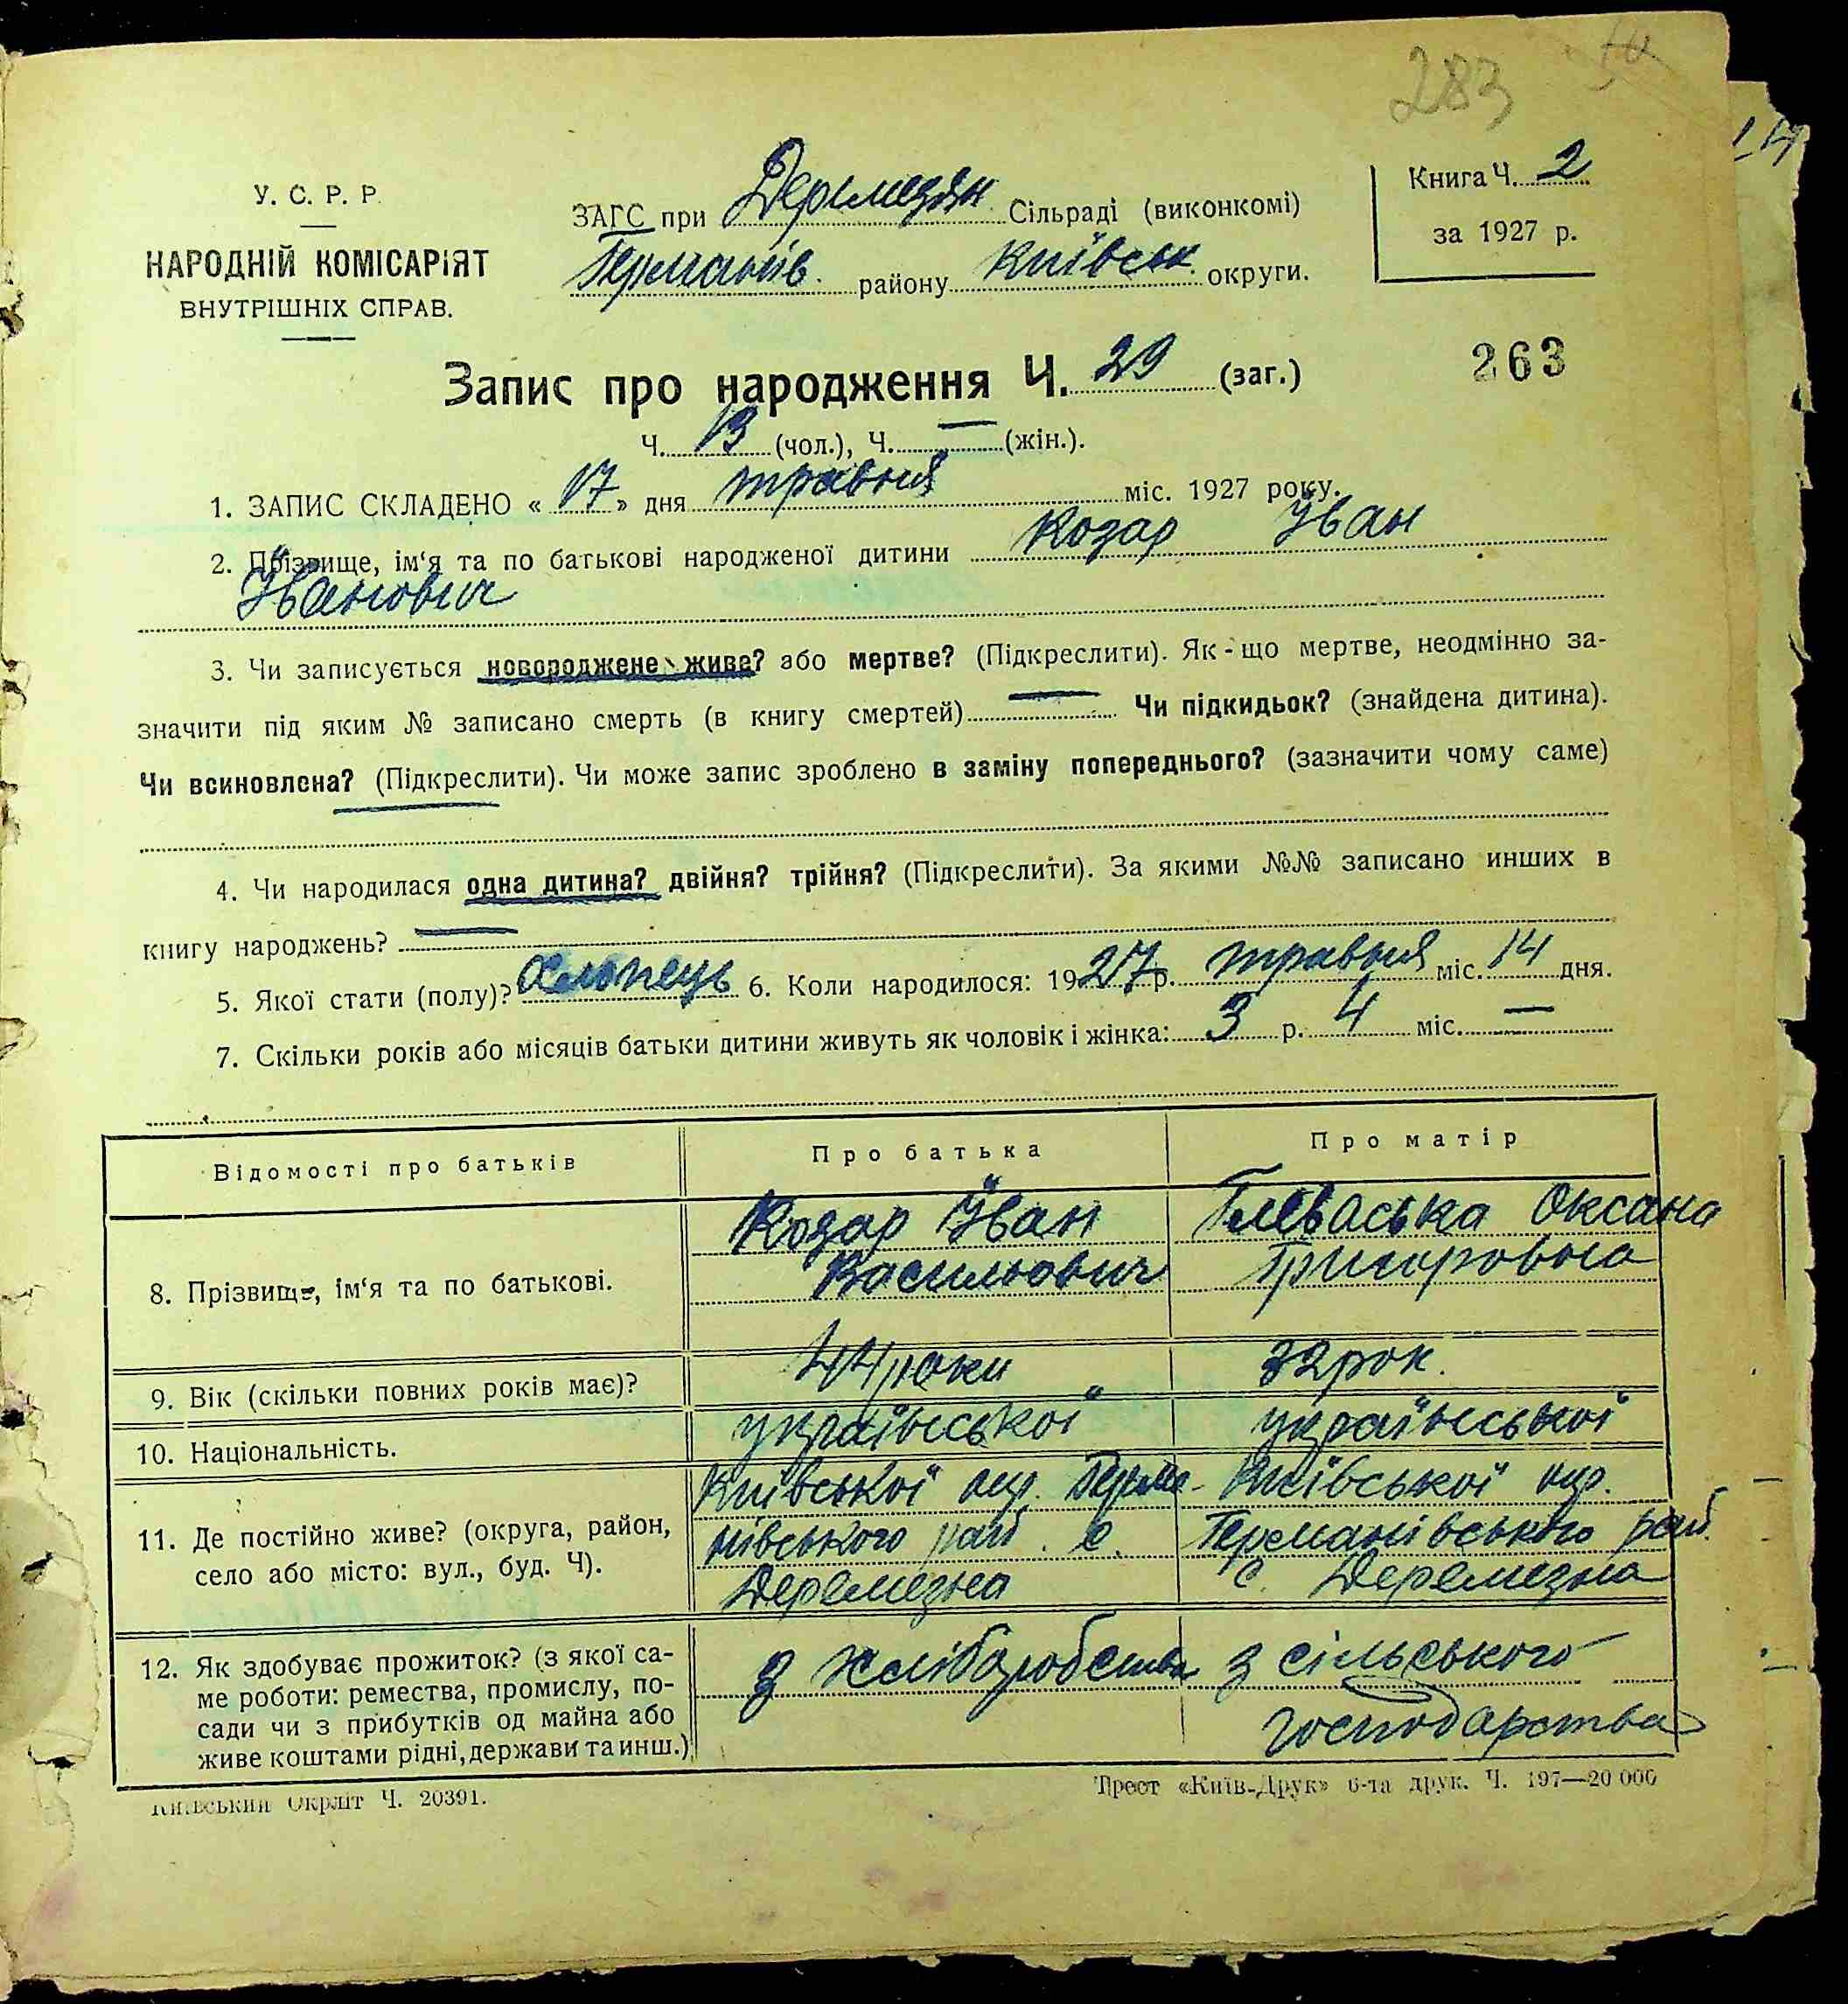 283
У. С. Р. Р.
НАРОДНІЙ КОМІСАРІЯТ
ВНУТРІШНІХ СПРАВ.
ЗАГС при Деремезян Сільраді (виконкомі)
Германів. району Київськ. округи.
Книга Ч. 2
за 1927 р.
263
Запис про народження Ч. 29 (заг.)
Ч. 13 (чол.), Ч. — (жін.).
1. ЗАПИС СКЛАДЕНО « 17 » дня травня міс. 1927 року.
2. Прізвище, ім‘я та по батькові народженої дитини Козар Іван
Іванович
3. Чи записується новороджене живе? або мертве? (Підкреслити). Як-що мертве, неодмінно за-
значити під яким № записано смерть (в книгу смертей) — Чи підкидьок? (знайдена дитина).
Чи всиновлена? (Підкреслити). Чи може запис зроблено в заміну попереднього? (зазначити чому саме)
4. Чи народилася одна дитина? двійня? трійня? (Підкреслити). За якими №№ записано инших в
книгу народжень? —
5. Якої стати (полу)? Хлопець 6. Коли народилося: 1927 р. травня міс. 14 дня.
7. Скільки років або місяців батьки дитини живуть як чоловік і жінка: 3 р. 4 міс. —
Відомості про батьків Про батька Про матір
8. Прізвище, ім‘я та по батькові.
Козар Іван
Васильович
Глеваська Оксана
Григоровна
9. Вік (скільки повних років має)? 44 роки 32 рок.
10. Національність. української української
11. Де постійно живе? (округа, район,
село або місто: вул., буд. Ч).
Київської окр. Герма-
нівського рай. с.
Деремезна
Київської окр.
Германівського рай.
с. Деремезна
12. Як здобуває прожиток? (з якої са-
ме роботи: ремества, промислу, по-
сади чи з прибутків од майна або
живе коштами рідні, держави та инш.)
з хліборобства
з сільського
господарства
Київський Окрліт Ч. 20391.
Трест «Київ-Друк» 6-та друк. Ч. 197—20 000